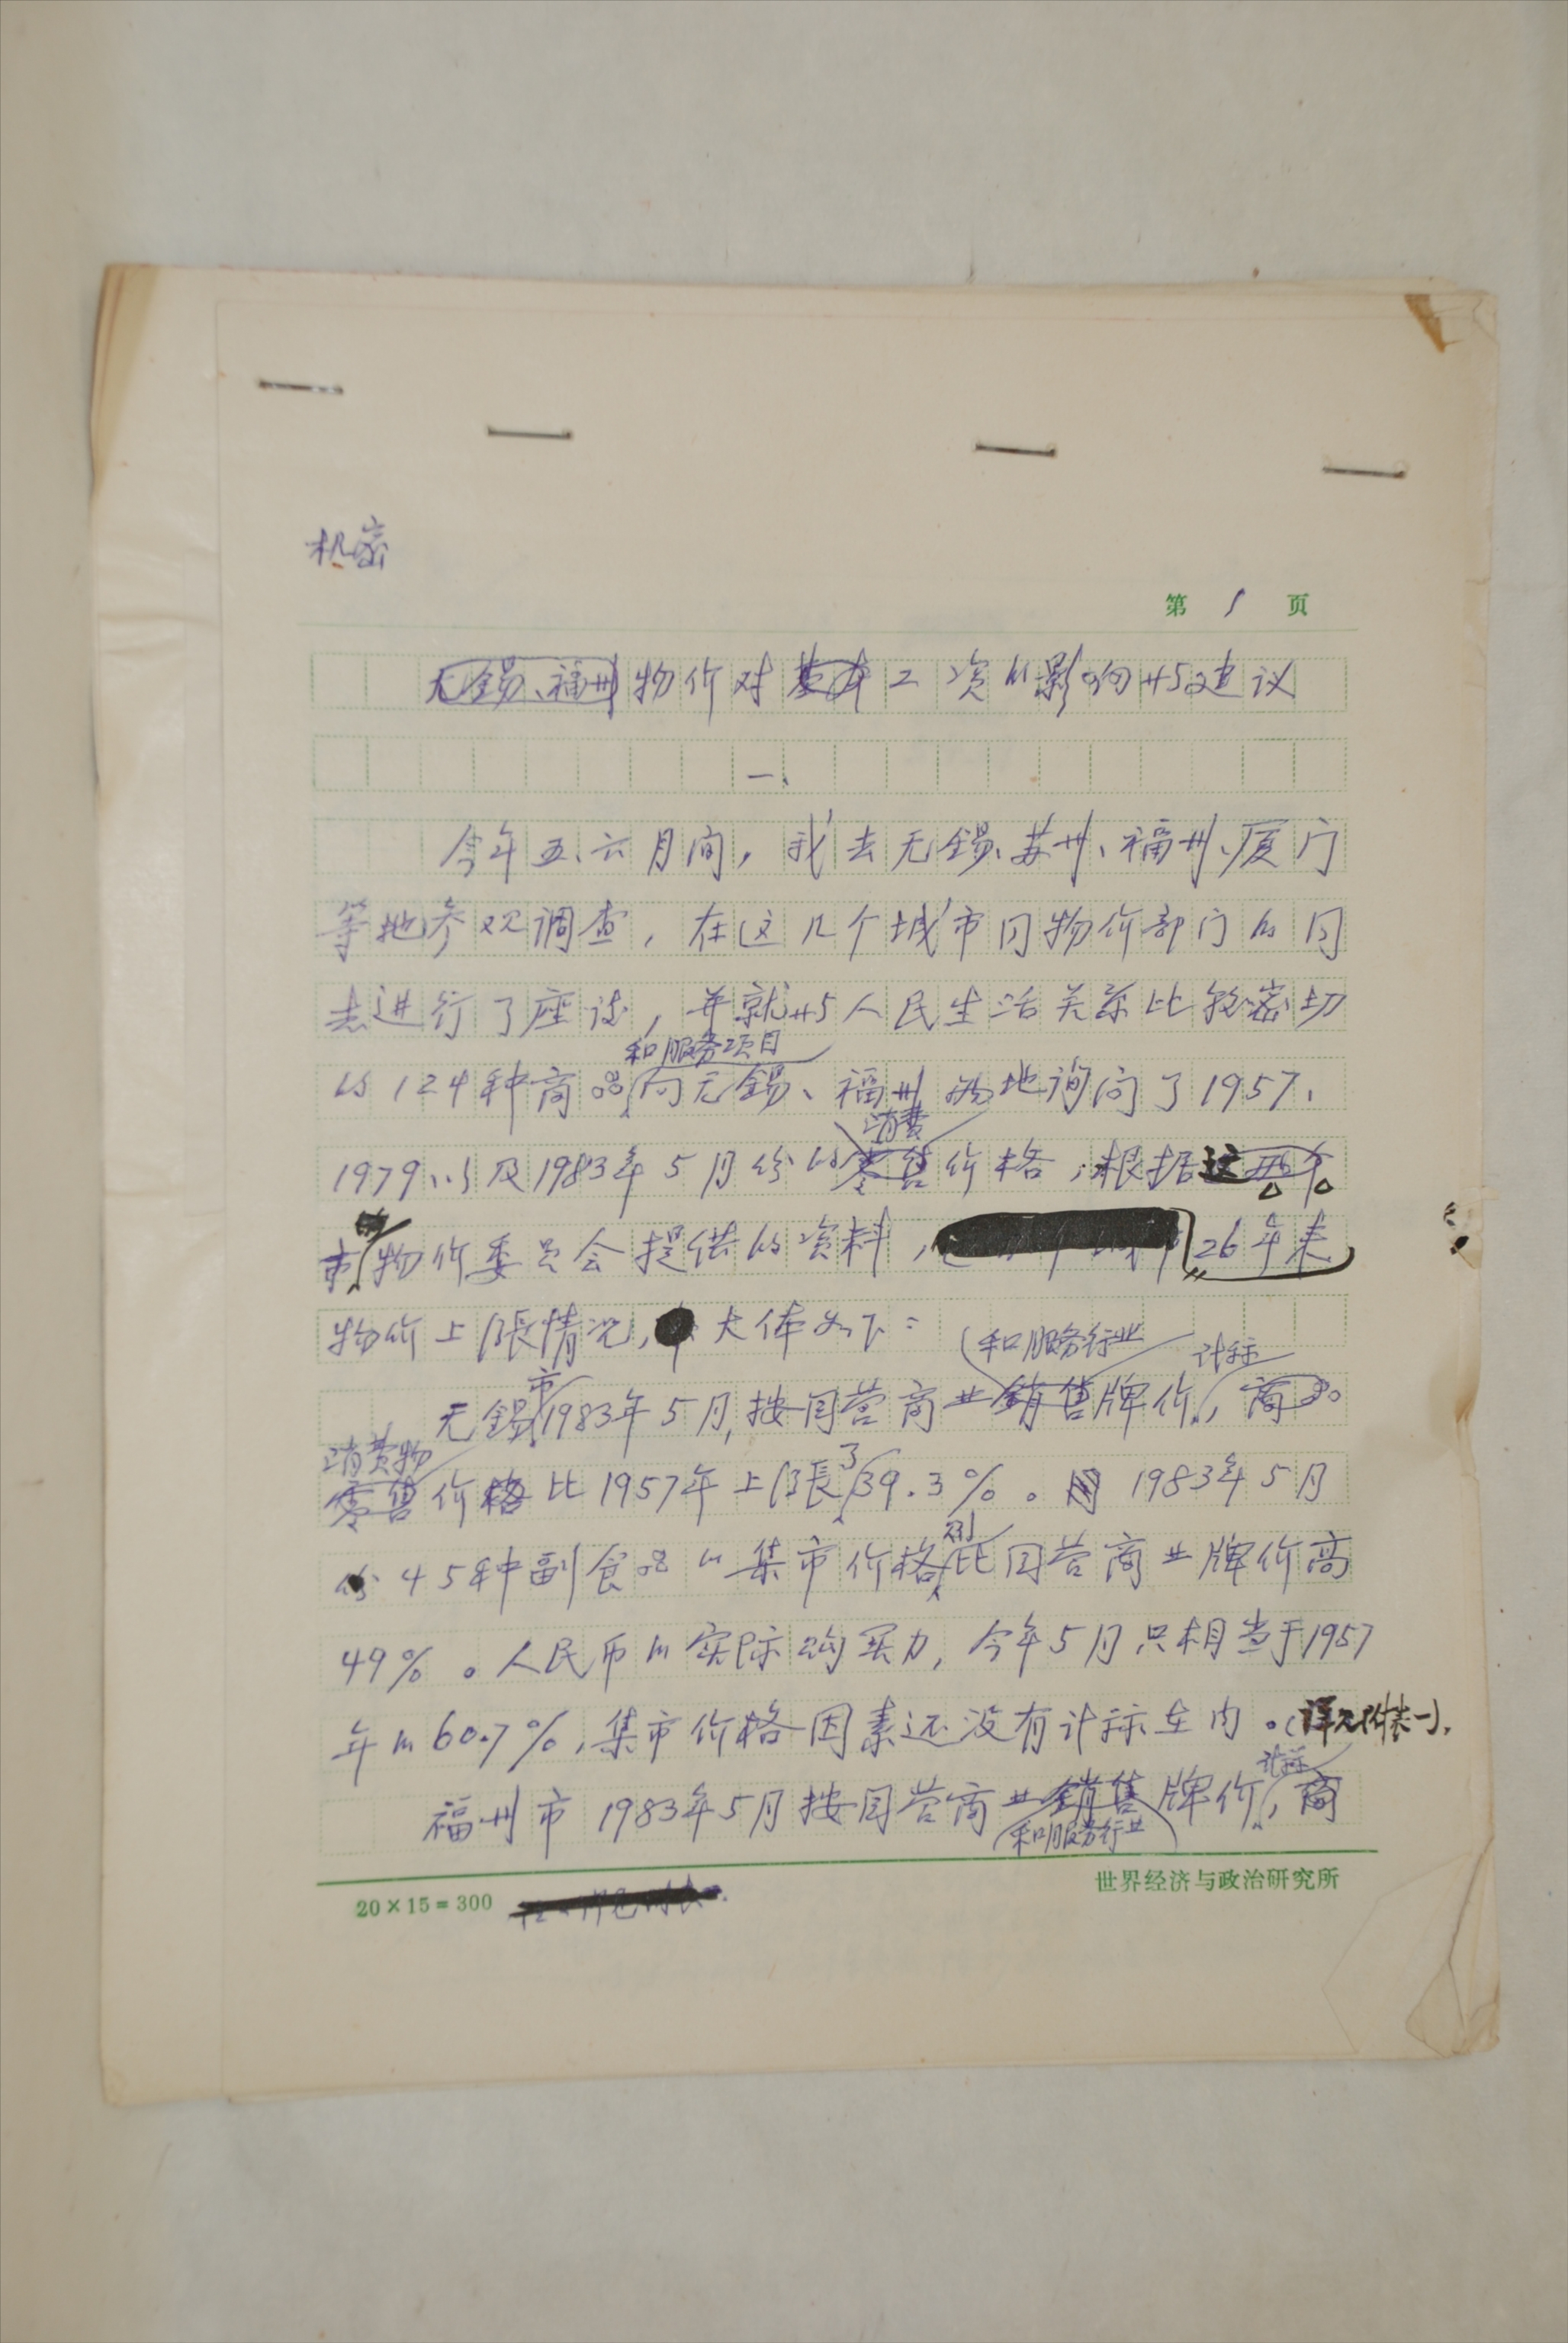 机密
第 1 页
无锡、福州物价对基本工资的影响与建议
一、
今年五、六月间，我去无锡、苏州、福州、厦门
等地参观调查，在这几个城市同物价部门的同
志进行了座谈，并就与人民生活关系比较密切
和服务项目
的124种商品向无锡、福州两地询问了1957、
消费
1979、以及1983年5月份的零售价格，根据这两个
市物价委员会提供的资料，26年来
物价上涨情况，大体如下：
和服务行业 计标
市
无锡1983年5月，按国营商业销售牌价，商品
消费物
了
零售价格比1957年上涨39.3%。1983年5月
则
份45种副食品的集市价格比国营商业牌价高
49%。人民币的实际购买力，今年5月只相当于1957
年的60.7%，集市价格因素还没有计标在内。（详见附表一）.
计标
福州市1983年5月按国营商业销售牌价，商
和服务行业
20×15=300
世界经济与政治研究所